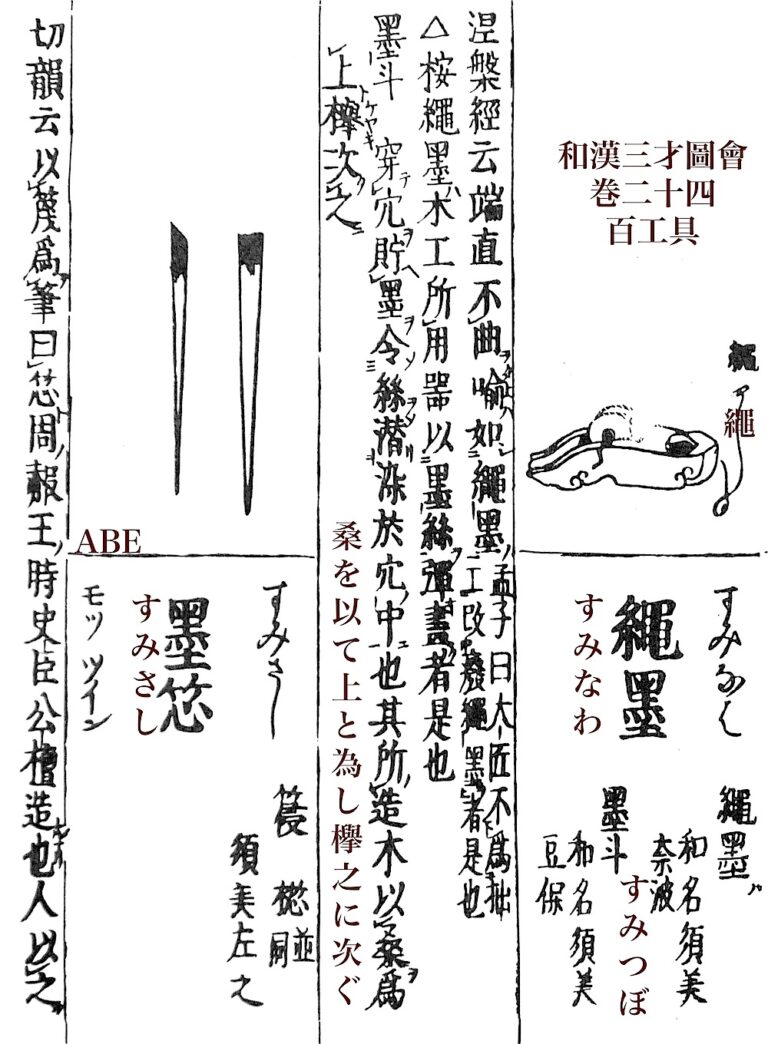 和漢三才圖會
巻二十四
百工具
繩
繩
すみなは
繩墨
すみなわ
繩墨ハ
和名須美
奈波
墨斗
和名須美
豆保
すみつぼ
涅槃經云端直不曲喩如繩墨孟子曰大匠不爲拙
工改廢繩墨者是也
△桉繩墨木工所用器以墨絲彈畫者是也
墨斗 穿穴貯墨令絲潜染於穴中也其所造木以桑爲
上欅次之
桑を以て上と為し欅之に次ぐ
ABE
すみさし
墨
すみさし
モツ ツイン
並
同
須美左之
切韻云以篾爲筆曰 周赧王時史臣公檀造也人以之